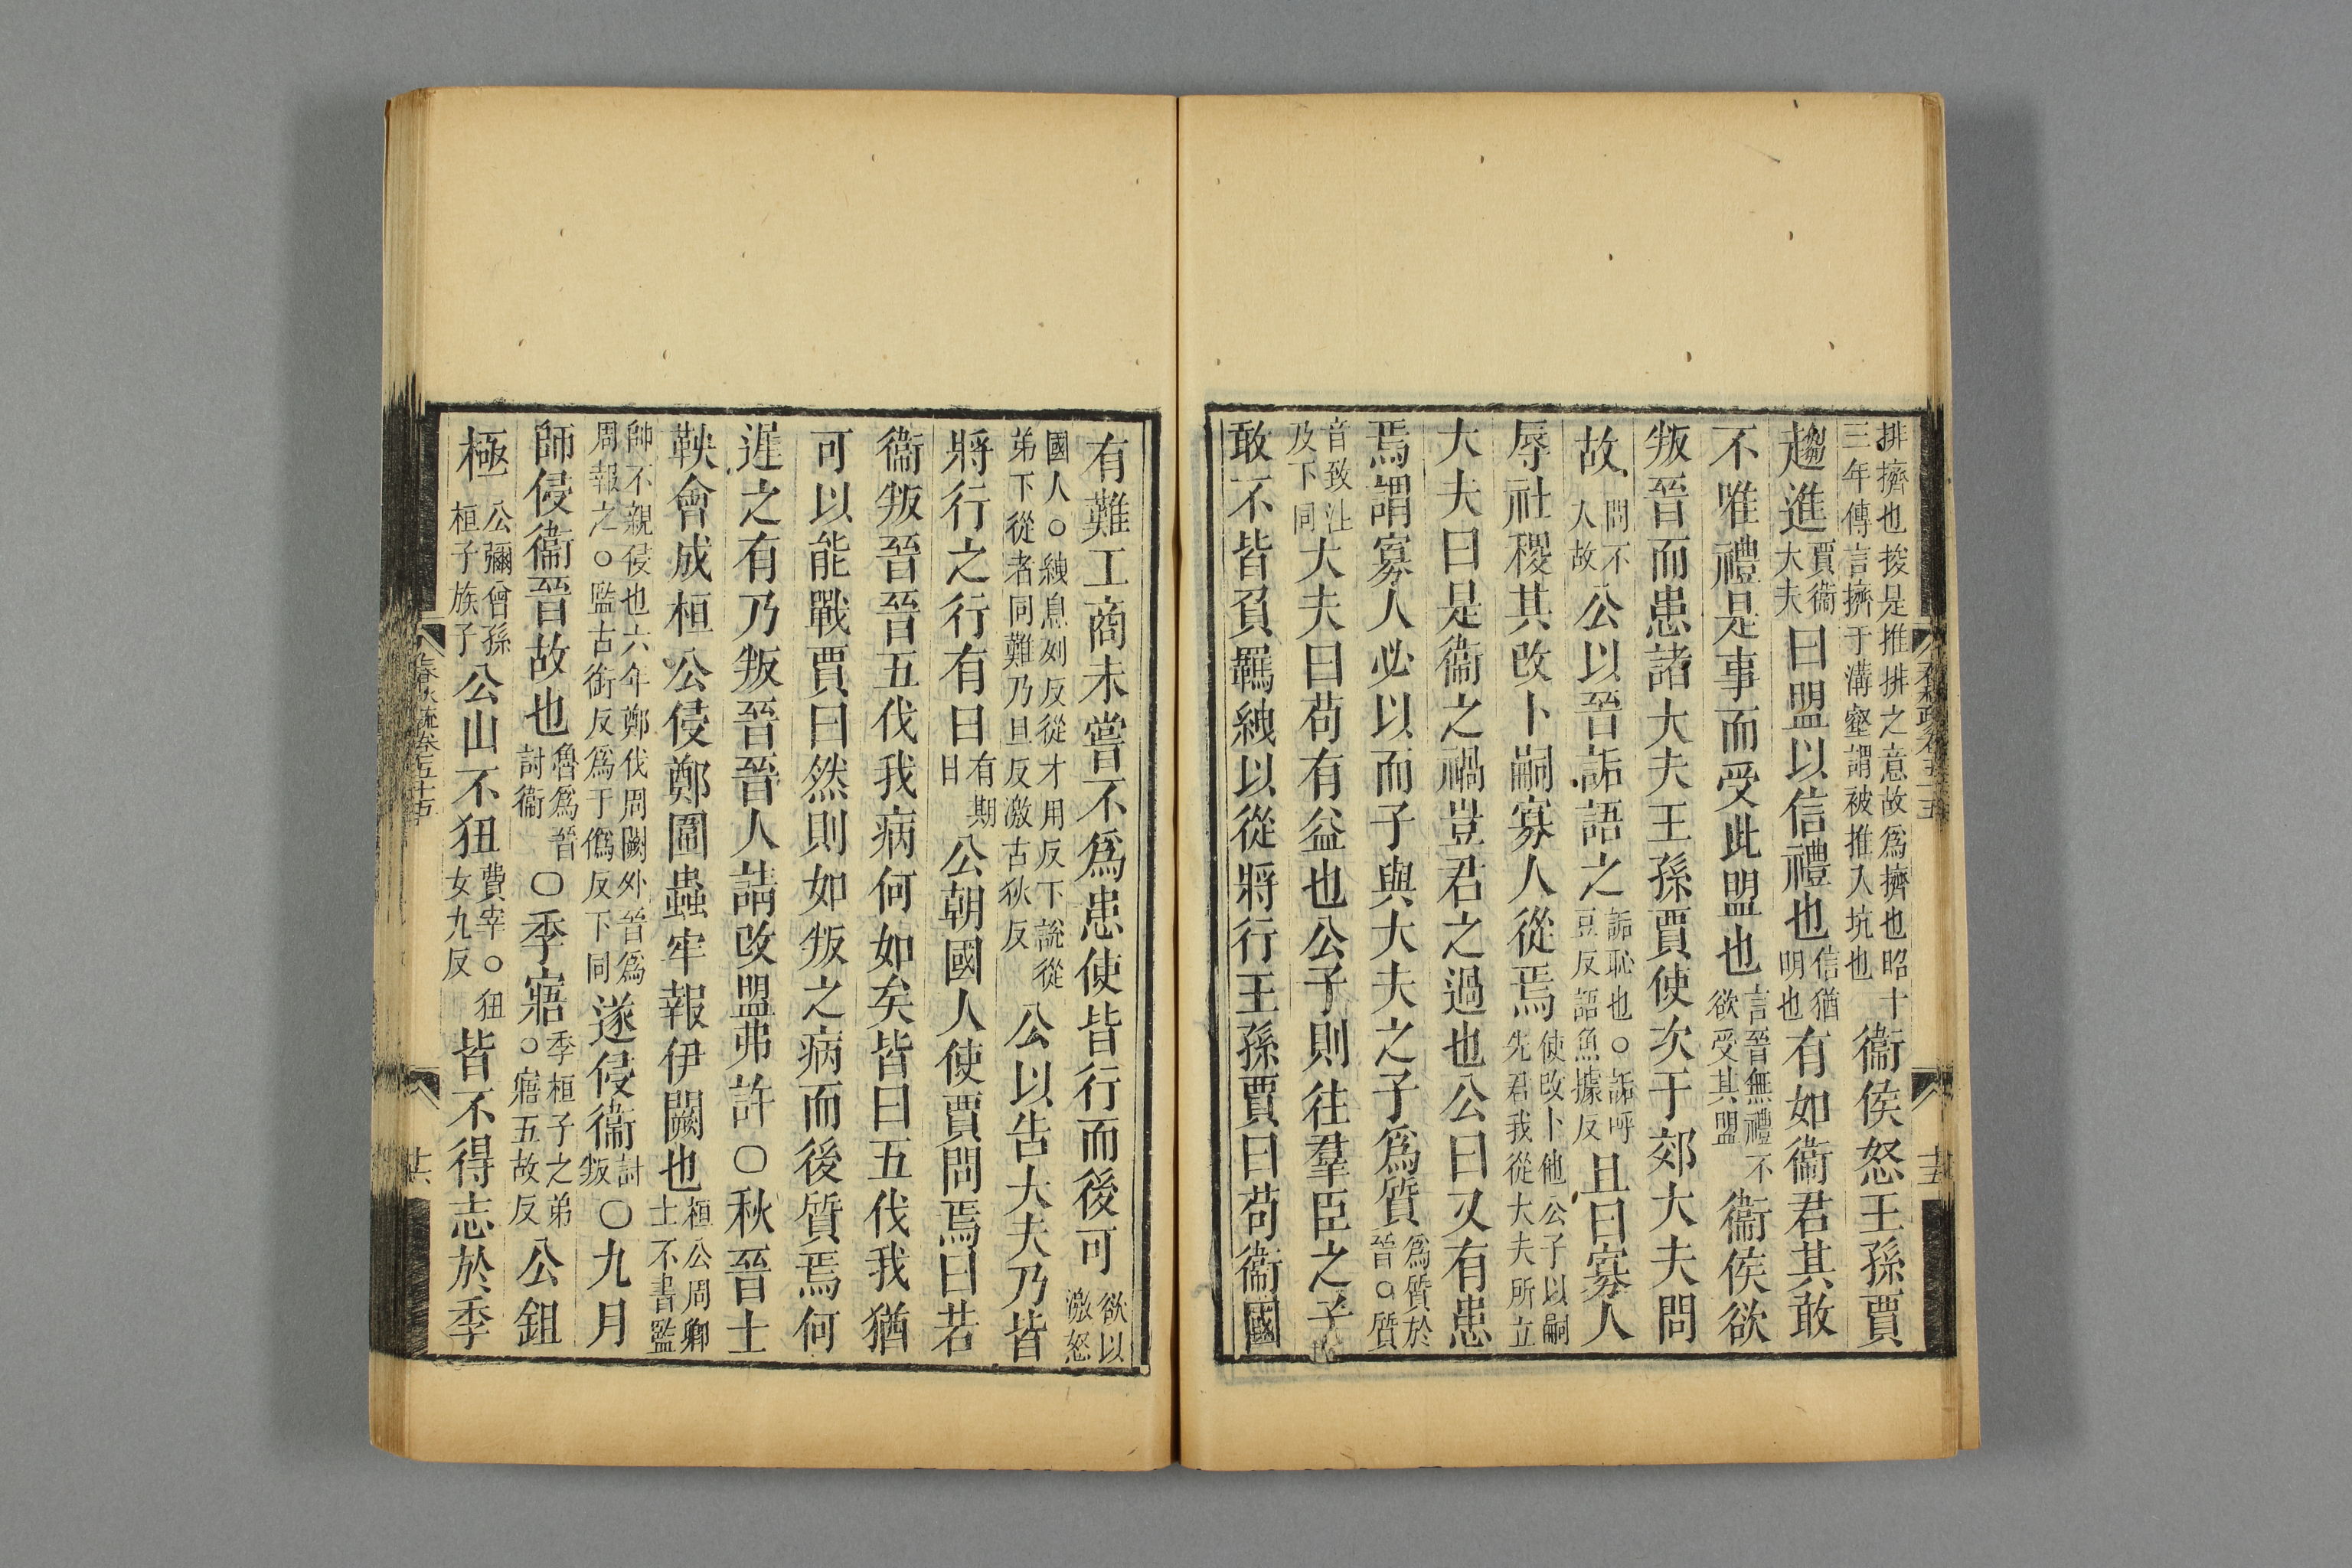 排擠也捘是推排之意故爲擠也昭十
三年傳言擠于溝壑謂被推入坑也
衞侯怒王孫賈
趨進
賈衞
大夫
曰盟以信禮也
信猶
明也
有如衞君其敢
不唯禮是事而受此盟也
言晉無禮不
欲受其盟
衞侯欲
叛晉而患諸大夫王孫賈使次于郊大夫問
故
問不
入故
公以晉詬語之
詬恥也○詬呼
豆反語魚據反
且曰寡人
辱社稷其改卜嗣寡人從焉
使改卜他公子以嗣
先君我從大夫所立
大夫曰是衞之禍豈君之過也公曰又有患
焉謂寡人必以而子與大夫之子爲質
爲質於
晉○質
音致注
及下同
大夫曰苟有益也公子則往羣臣之子
敢不皆負羈絏以從將行王孫賈曰苟衞國
有難工商未嘗不爲患使皆行而後可
欲以
激怒
國人○絏息列反從才用反下說從
弟下從者同難乃旦反激古狄反
公以告大夫乃皆
將行之行有日
有期
日
公朝國人使賈問焉曰若
衞叛晉晉五伐我病何如矣皆曰五伐我猶
可以能戰賈曰然則如叛之病而後質焉何
遲之有乃叛晉晉人請改盟弗許○秋晉士
鞅會成桓公侵鄭圍蟲牢報伊闕也
桓公周卿
士不書監
帥不親侵也六年鄭伐周闕外晉爲
周報之○監古銜反爲于僞反下同
遂侵衞
討
叛
○九月
師侵衞晉故也
魯爲晉
討衞
○季寤
季桓子之弟
○寤五故反
公鉏
極
公彌曾孫
桓子族子
公山不狃
費宰○狃
女九反
皆不得志於季
春秋疏卷五十五
廿六